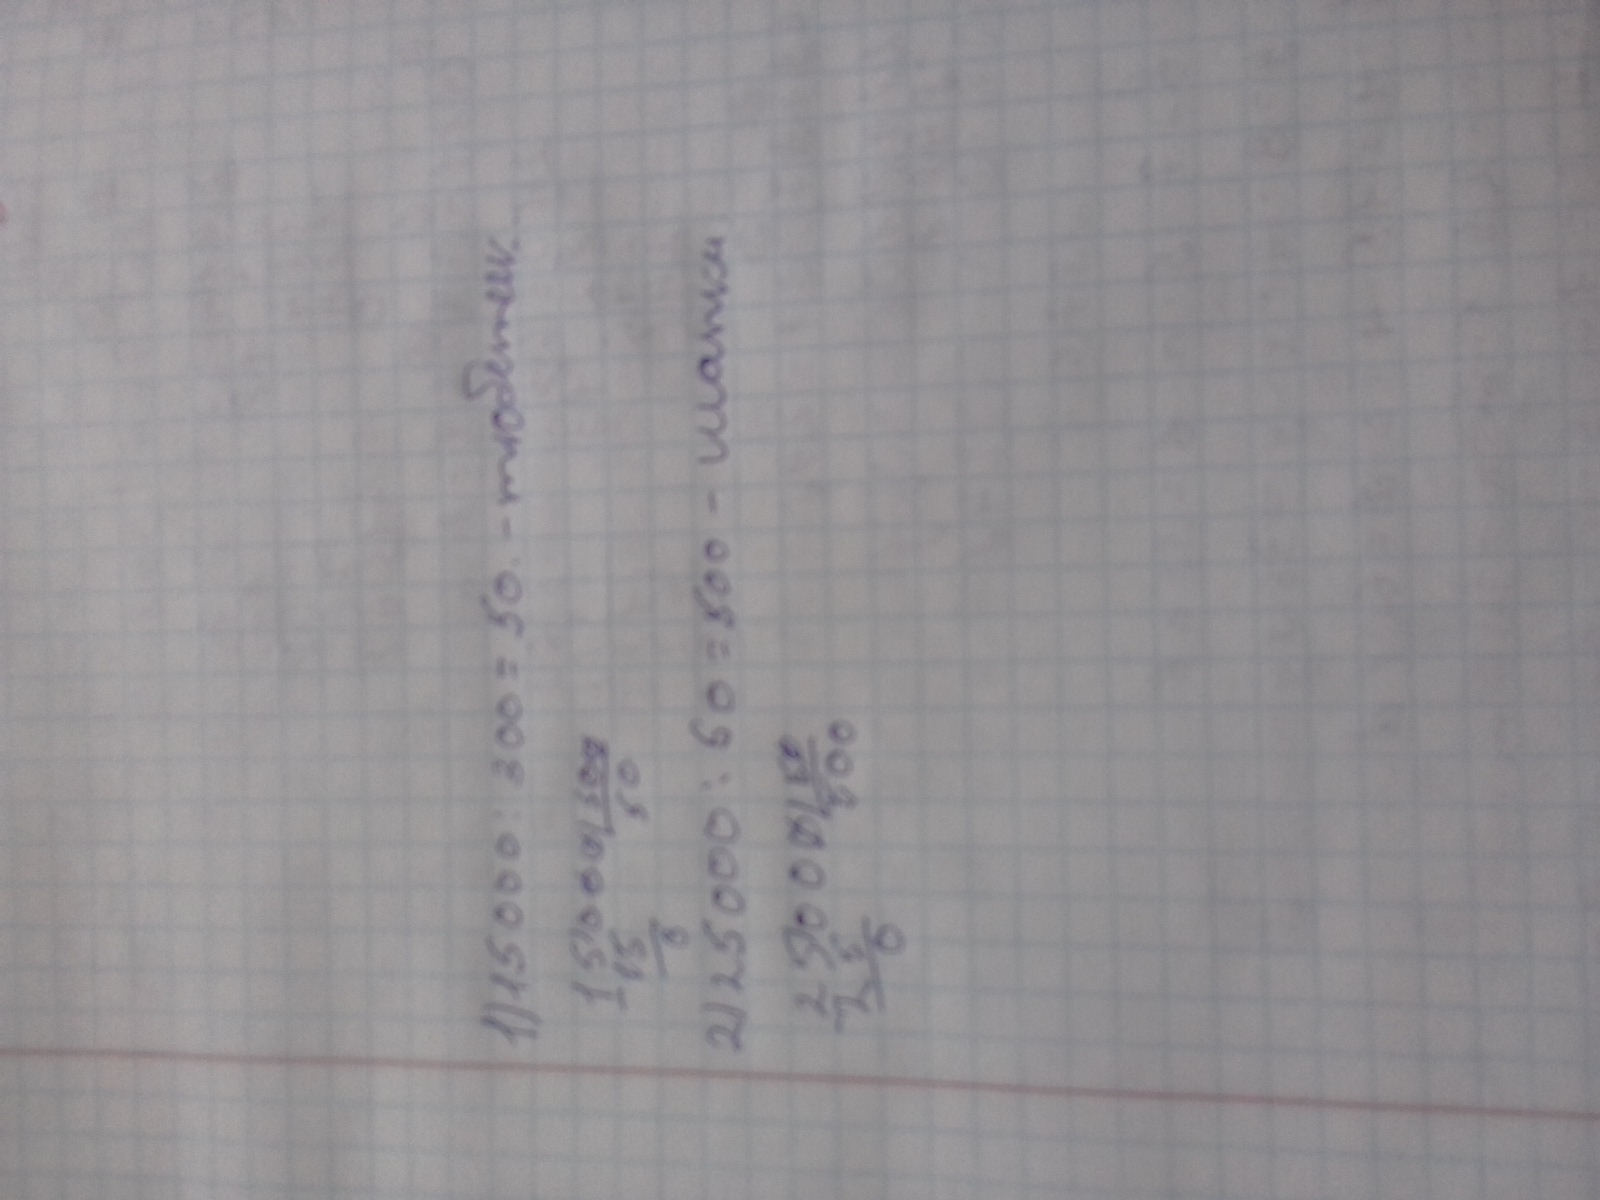 1) 15000 : 300 = 50. - тюбетеек.
15000 | 300
15 50
0
2) 25000 : 50 = 500 - шапки
25000 | 50
25 500
0